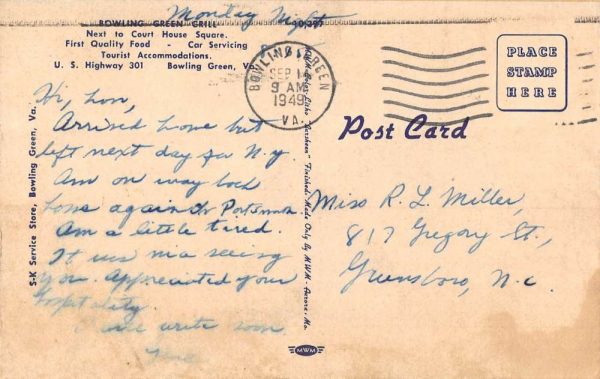 Monday Night
BOWLING GREEN GRILL
Next to Court House Square.
First Quality Food - Car Servicing
Tourist Accommodations.
U. S. Highway 301 Bowling Green, Va.
BOWLING GREEN
SEP
9 AM
1949
VA.
PLACE
STAMP
HERE
Post Card
Hi, hon,
Arrived home but
left next day for N.Y.
Am on way back
home again to Portsmouth
Am a little tired.
It was nice seeing
you. Appreciated your
hospitality.
write soon
Miss R. L. Miller,
817 Gregory St.,
Greensboro, N.C.
S-K Service Store, Bowling Green, Va.
"Finished" Made Only By MWM - Aurora, Mo.
MWM